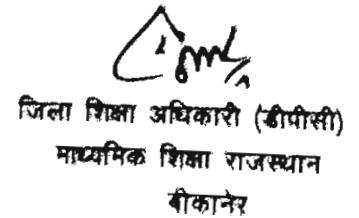 जिला शिक्षा अधिकारी (डीपीसी)
माध्यमिक शिक्षा राजस्थान
बीकानेर